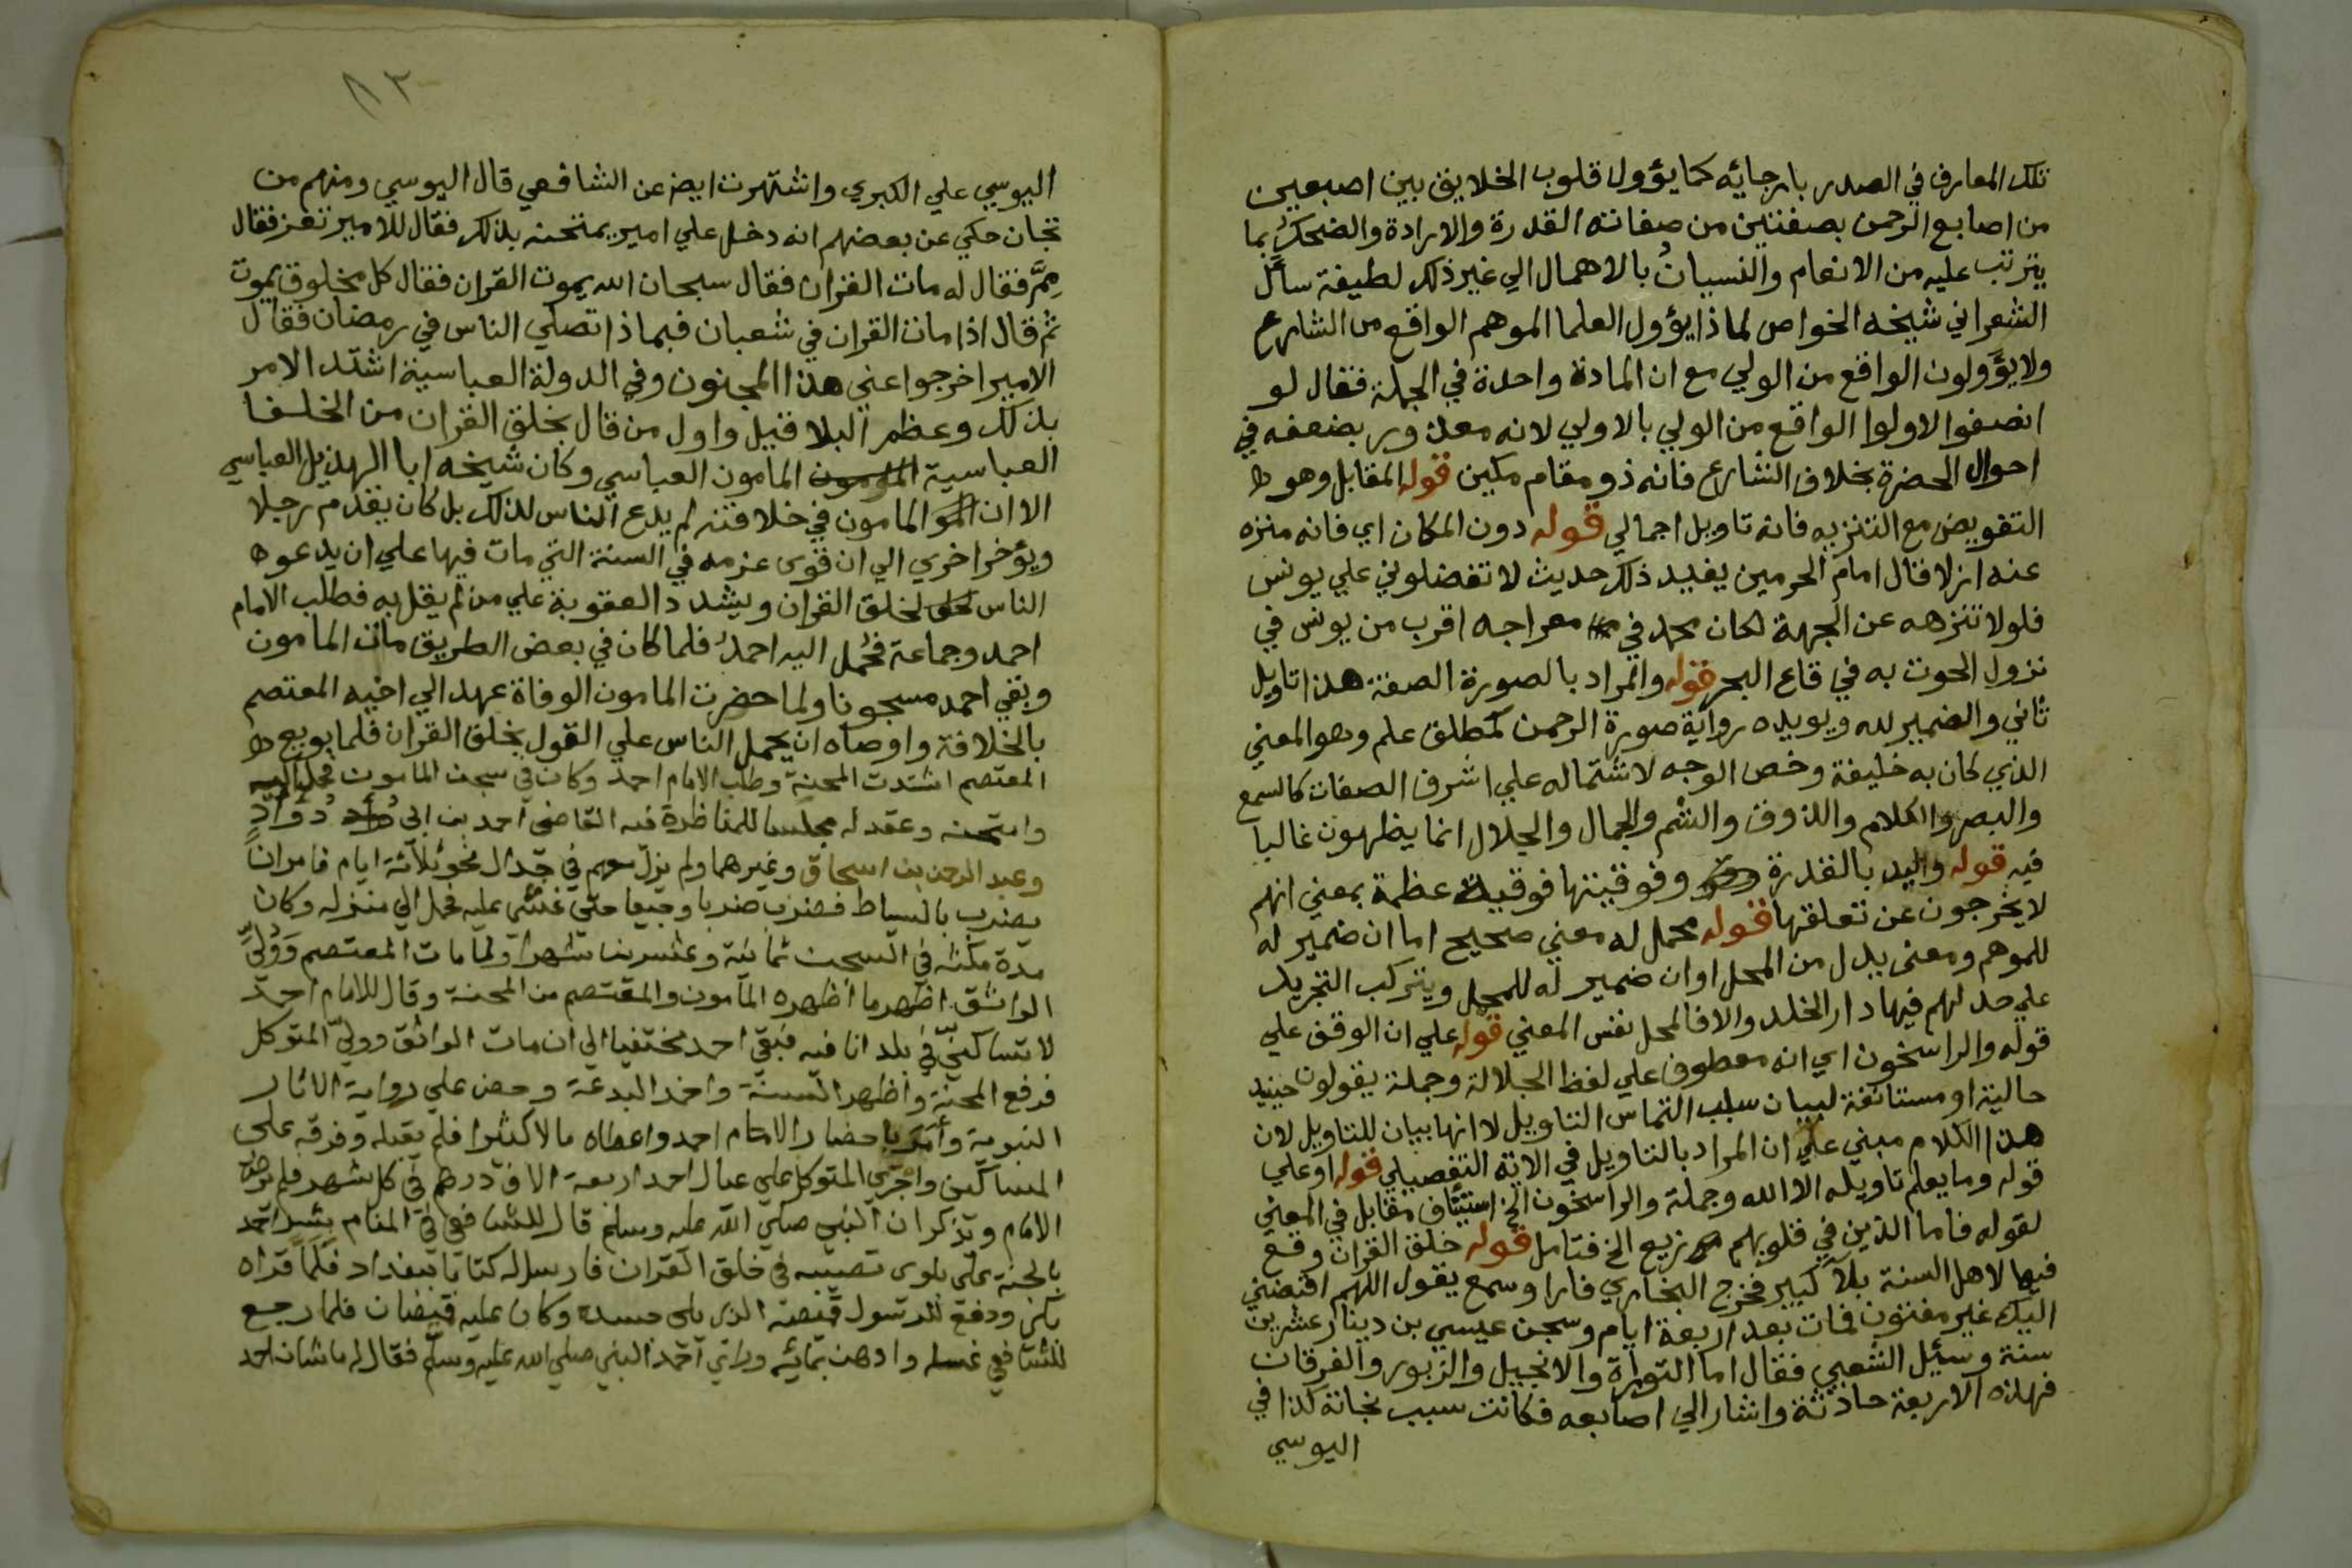 تلك المعارف في الصدر بارجائه كما يؤول قلوب الخلايق بين اصبعين
من اصابع الرحمن بصفتين من صفاته القدرة والارادة والضحك بما
يترتب عليه من الانعام والنسيان بالاهمال الي غير ذلك لطيفة سأل
الشعراني شيخه الخواص لماذا يؤول العلما الموهم الواقع من الشارع
ولا يؤولون الواقع من الولي مع ان المادة واحدة في الجملة فقال لو
انصفوا لاولوا الواقع من الولي بالاولي لانه معذور بضعفه في
احوال الحضرة بخلاف الشارع فانه ذو مقام مكين قوله المقابل وهو
التفويض مع التنزيه فانه تاويل اجمالي قوله دون المكان اي فانه منزه
عنه ازلا قال امام الحرمين يفيد ذلك حديث لا تفضلوني علي يونس
فلولا تنزهه عن الجهة لكان محمد في معراجه اقرب من يونس في
نزول الحوت به في قاع البحر قوله والمراد بالصورة الصفة هذا تاويل
ثاني والضمير لله ويويده رواية صورة الرحمن لمطلق علم وهو المعني
الذي كان به خليفة وخص الوجه لاشتماله علي اشرف الصفات كالسمع
والبصر والكلام والذوق والشم والجمال والجلال انما يظهرون غالبا
فيه قوله واليد بالقدرة وفوقيتها فوقية عظمة بمعني انهم
لا يخرجون عن تعلقها قوله محمل له معني صحيح اما ان ضمير له
للموهم ومعنى بدل من المحل او ان ضمير له للمحل ويتركب التجريد
علي حد لهم فيها دار الخلد والا فالمحل نفس المعني قوله علي ان الوقف علي
قوله والراسخون اي انه معطوف علي لفظ الجلالة وجملة يقولون حينيد
حالية او مستانفة لبيان سبب التماس التاويل لا انها بيان للتاويل لان
هذا الكلام مبني علي ان المراد بالتاويل في الاية التفصيلي قوله او علي
قوله وما يعلم تاويله الا الله وجملة والراسخون الخ استيناف مقابل في المعني
لقوله فاما الذين في قلوبهم زيع الخ فتامل قوله خلق القران وقع
فيها لاهل السنة بلآ كبير فخرج البخاري فارا وسمع يقول اللهم اقبضني
اليك غير مفتون فمات بعد اربعة ايام وسجن عيسي بن دينار عشرين
سنة وسئيل الشعبي فقال اما التوراة والانجيل والزبور والفرقان
فهذه الاربعة حادثة واشار الي اصابعه فكانت سبب نجاته كذا في
اليوسي
٨٣
اليوسي علي الكبري واشتهرت ايض عن الشافعي قال اليوسي ومنهم من
تجان حكي عن بعضهم انه دخل علي امير يمتحنه بذلك فقال للامير تعز فقال
مِمَّ فقال له مات القران فقال سبحان الله يموت القران فقال كل مخلوق يموت
ثم قال اذا مات القران في شعبان فبماذا تصلي الناس في رمضان فقال
الامير اخرجوا عني هذا المجنون وفي الدولة العباسية اشتد الامر
بذلك وعظم البلا قيل واول من قال بخلق القران من الخلفا
العباسية المامون العباسي وكان شيخه ابا الهذيل العباسي
الا ان المامون في خلافته لم يدع الناس لذلك بل كان يقدم رجلا
ويؤخر اخري الي ان قوى عزمه في السنة التي مات فيها علي ان يدعو
الناس لخلق القران ويشدد العقوبة علي من لم يقل به فطلب الامام
احمد وجماعة فحُمل اليه احمدُ فلما كان في بعض الطريق مات المامون
وبقي احمد مسجونا ولما حضرت المامون الوفاة عهد الي اخيه المعتصم
بالخلافة واوصاه ان يحمل الناس علي القول بخلق القران فلما بويع
المعتصم اشتدت المحنة وطلب الامام احمد وكان في سجن المامون فحمل اليه
وامتحنه وعقد له مجلسا للمناظرة فيه القاضي احمد بن ابي دُؤَادٍ
وعبد الرحمن بن اسحاق وغيرهما ولم يزل معهم في جدال نحو ثلاثة ايام فامر ان
يضرب بالسياط فضرب ضربا وجيعا حتي غشي عليه فحمل الي منزله وكان
مدة مكثه في السجن ثمانية وعشرين شهرا ولما مات المعتصم وَوُلِّيَ
الواثق اظهر ما اظهره المامون والمعتصم من المحنة وقال للامام احمد
لا تساكنّي في بلد انا فيه فبقي احمد مختفيا الي ان مات الواثق وولي المتوكل
فرفع المحنة واظهر السنة واخمد البدعة وحض علي رواية الاثار
النبوية وأمر باحضار الامام احمد واعطاه مالا كثيرا فلم يقبله وفرقه علي
المساكين واجري المتوكل علي عيال احمد اربعة الاف درهم في كل شهر فلم يرض
الامام ويذكر ان النبي صلي الله عليه وسلم قال للشافعي في المنام بشر احمد
بالجنة علي بلوى تصيبه في خلق القران فارسل له كتابا ببغداد فلما قراه
بكي ودفع للرسول قميصه الذي يلي جسده وكان عليه قميصان فلما رجع
للشافعي غسله وادهن بمائه وراي احمد النبي صلي الله عليه وسلم فقال له ما شان احمد